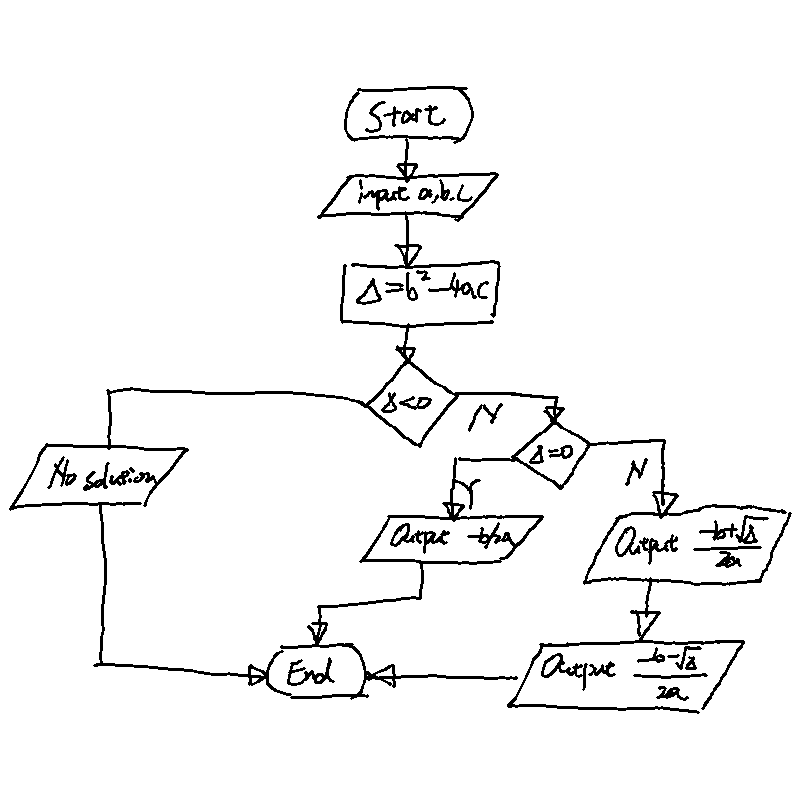 Start
input a,b.c
Δ=b²-4ac
Δ<0
N
Δ=0
Y
N
No solution
Output -b/2a
Output (-b+√Δ)/2a
Output (-b-√Δ)/2a
End